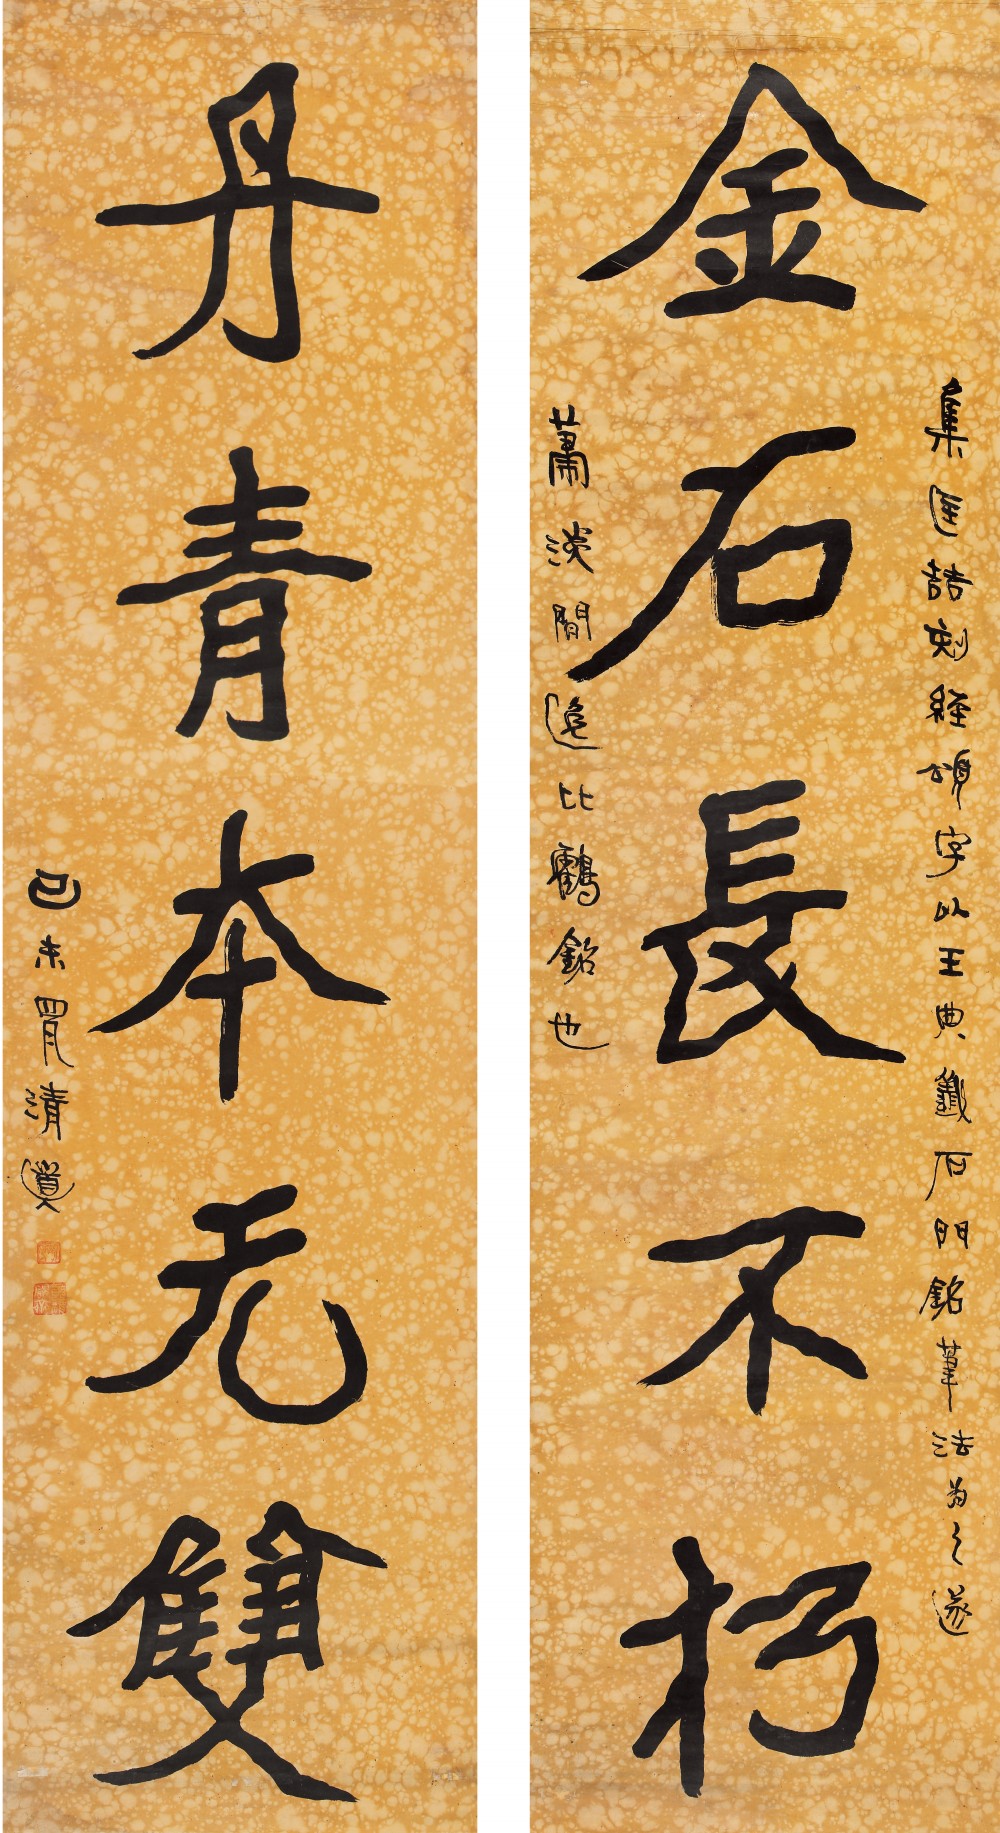 集匡喆刻經頌字以王典籤石門銘筆法為之遂
金石長不朽
蕭淡間逸比鶴銘也
丹青本无雙
己未四月清道人